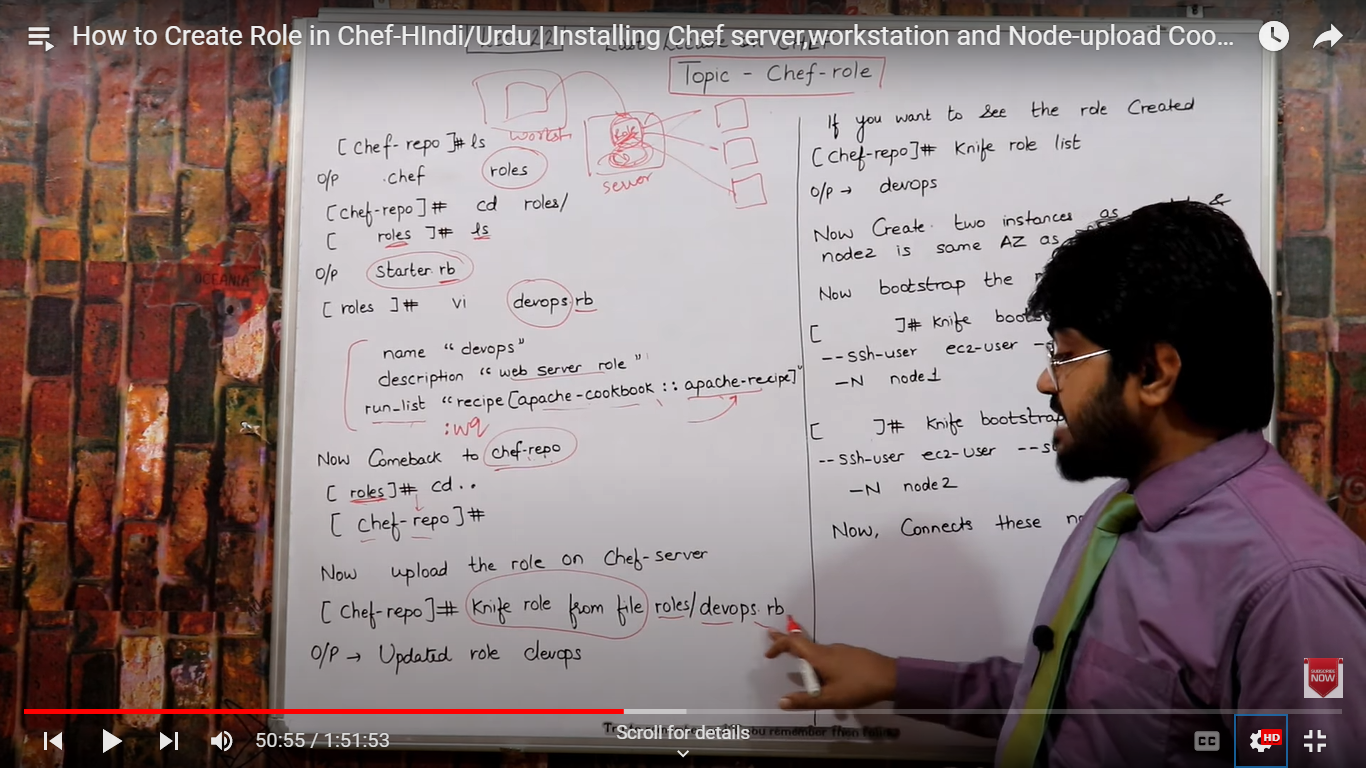 How to Create Role in Chef-HIndi/Urdu | Installing Chef server,workstation and Node-upload Coo...
Topic - Chef-role
[chef-repo]# ls
O/P .chef roles
[chef-repo]# cd roles/
[ roles ]# ls
O/P starter.rb
[ roles ]# vi devops.rb
name "devops"
description "web server role"
run_list "recipe[apache-cookbook :: apache-recipe]"
:wq
Now Comeback to chef-repo
[ roles]# cd..
[ chef-repo]#
Now upload the role on Chef-server
[Chef-repo]# Knife role from file roles/devops.rb
O/P → Updated role devops
workst
role
server
If you want to see the role Created
[Chef-repo]# Knife role list
O/P → devops
Now Create two instances as
node2 is same AZ as
Now bootstrap the
[ ]# Knife
--ssh-user ec2-user
-N node1
[ ]# Knife bootstrap
--ssh-user ec2-user
-N node2
Now, Connects these
SUBSCRIBE
NOW
50:55 / 1:51:53
Scroll for details
CC
HD